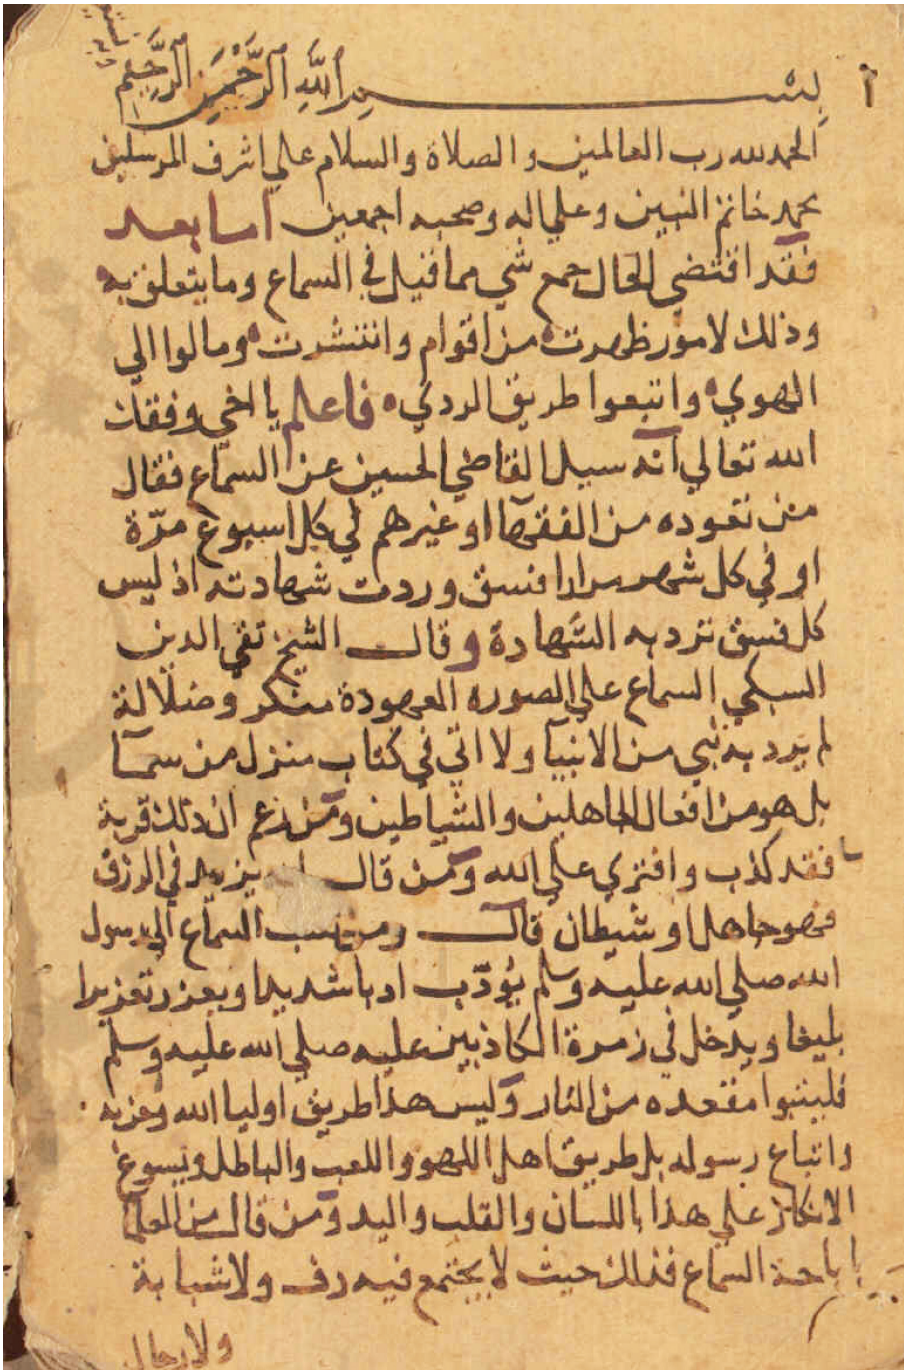 بِسْمِ اللَّهِ الرَّحْمٰنِ الرَّحِيمِ
الحمد لله رب العالمين والصلاة والسلام علي اشرف المرسلين
محمد خاتم النبين وعلي اله وصحبه اجمعين اما بعد
فقد اقتضي الحال جمع شي مما قيل في السماع وما يتعلق به
وذلك لامور ظهرت من اقوام وانتشرت ومالوا الي
الهوي واتبعوا طريق الردي فاعلم يا اخي وفقك
الله تعالي انه سيل القاضي الحسين عن السماع فقال
من تعوده من الفقهآ او غيرهم في كل اسبوع مرّة
او في كل شهر مرارا فسق وردت شهادته اذ ليس
كل فسق ترد به الشهادة وقال الشيخ تقي الدين
السبكي السماع علي الصوره المعهودة منكر وضلالة
لم يرد به نبي من الانبيآ ولا اتي في كتاب منزل من سمآ
بل هو من افعال الجاهلين والشياطين ومن زعم ان ذلك قربة
فقد كذب وافتري علي الله ومن قال انه يزيد في الرزق
فهو جاهل او شيطان قال ومن نسب السماع الي رسول
الله صلي الله عليه وسلم يؤدّب ادبا شديدا ويعزر تعزيرا
بليغا ويدخل في زمرة الكاذبين عليه صلي الله عليه وسلم
فليتبوا مقعده من النار وليس هذا طريق اوليا الله وحزبه
واتباع رسوله بل طريق اهل اللهو واللعب والباطل ويسوغ
الانكار علي هذا باللسان والقلب واليد ومن قال من العلمآ
باباحة السماع فذلك حيث لا يجتمع فيه دف ولا شبابة
ولا رجال